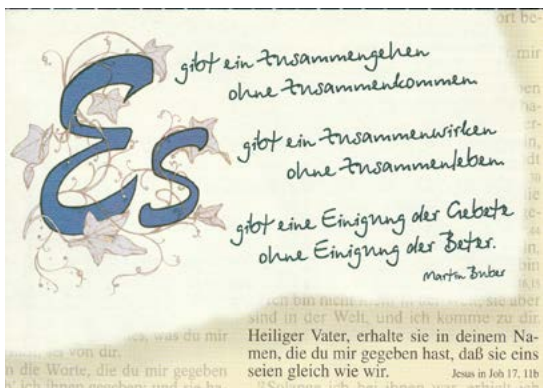 Es
gibt ein Zusammengehen
ohne Zusammenkommen
gibt ein Zusammenwirken
ohne Zusammenleben
gibt eine Einigung der Gebete
ohne Einigung der Beter.
Martin Buber
ort be-
mir
bin nicht mehr in der Welt, sie aber
sind in der Welt, und ich komme zu dir.
Heiliger Vater, erhalte sie in deinem Na-
men, die du mir gegeben hast, daß sie eins
seien gleich wie wir.
Jesus in Joh 17, 11b
was du mir
von dir.
die Worte, die du mir gegeben